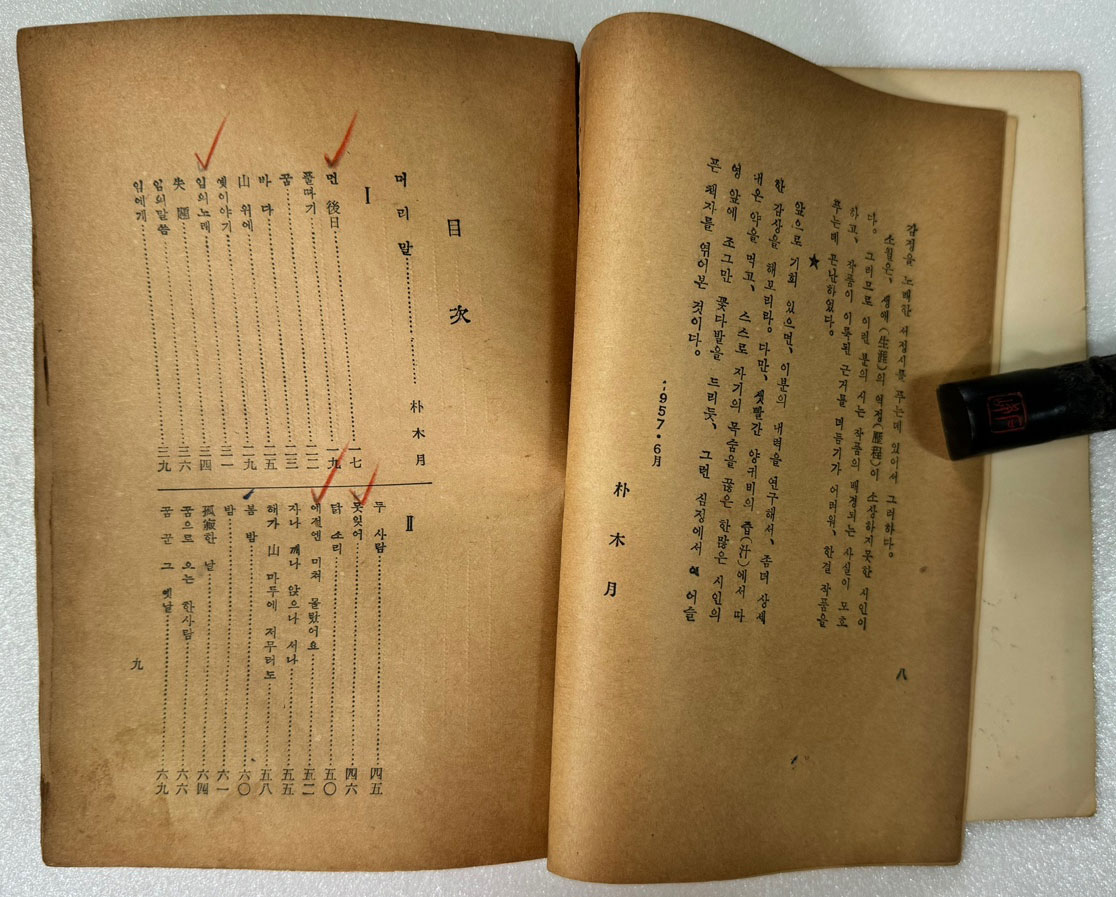 감정을 노래한 서정시를 푸는데 있어서 그러하다。
소월은、생애(生涯)의 역정(歷程)이 소상하지못한 시인이
다。그러므로 이런 분의 시는 작품의 배경되는 사실이 모호
하고、작품이 이룩된 근거를 더듬기가 어려워、한결 작품을
푸는데 곤난하였다。
★
앞으로 기회 있으면、이분의 내력을 연구해서、좀더 상세
한 감상을 해보리라。다만、샛빨간 양귀비의 즙(汁)에서 따
내온 약을 먹고、스스로 자기의 목숨을 끊은 한많은 시인의
영 앞에 조그만 꽃다발을 드리듯、그런 심정에서 어슬
픈 책자를 엮어본 것이다。
1957·6月
朴木月
八
目次
머리말 朴木月
Ⅰ
먼 後日 一七
풀따기 一九
꿈 二二
바다 二三
山 위에 二五
옛이야기 二九
임의노래 三一
失題 三四
임의말씀 三六
임에게 三九
Ⅱ
두 사람 四五
못잊어 四六
닭 소리 五〇
예전엔 미쳐 몰랐어요 五二
자나 깨나 앉으나 서나 五五
해가 山 마루에 저무러도 五八
봄 밤 六〇
밤 六一
孤寂한 날 六四
꿈으로 오는 한사람 六六
꿈 꾼 그 옛날 六九
九